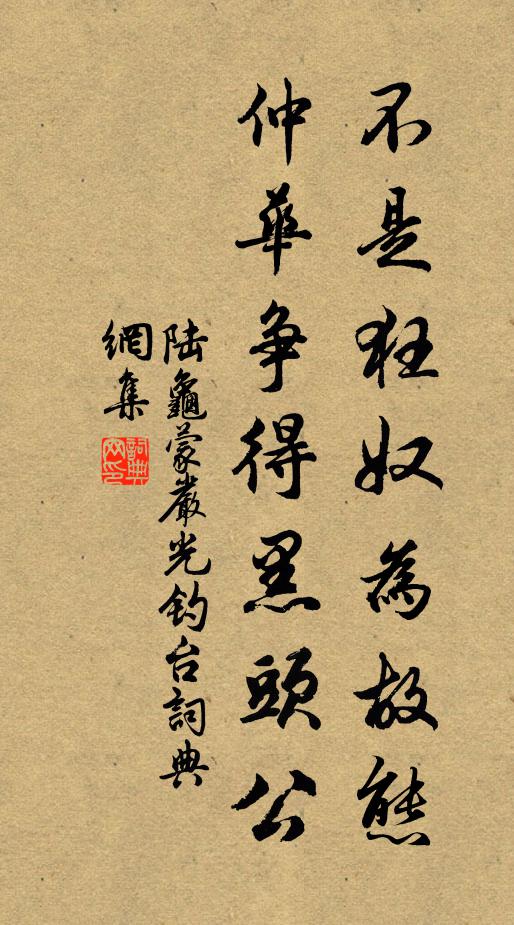 不是狂奴為故態
仲華争得黑頭公
陆龜蒙嚴光钓台詞典
網集
詞典網印